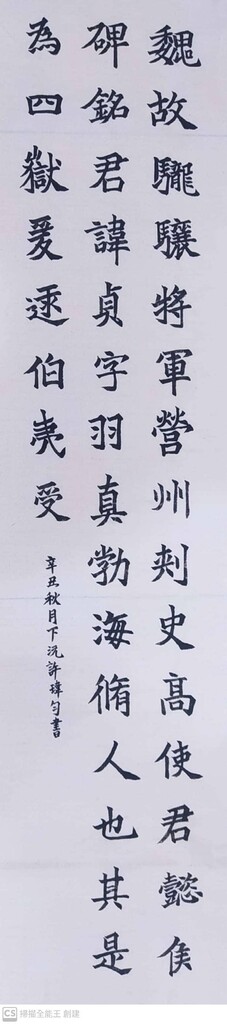 魏故驪驤將軍營州刾史高使君懿侯
碑銘君諱貞字羽真勃海脩人也其是
為四嶽爰逮伯夷受
辛丑秋月下浣許瑋勻書
CS 掃描全能王 創建